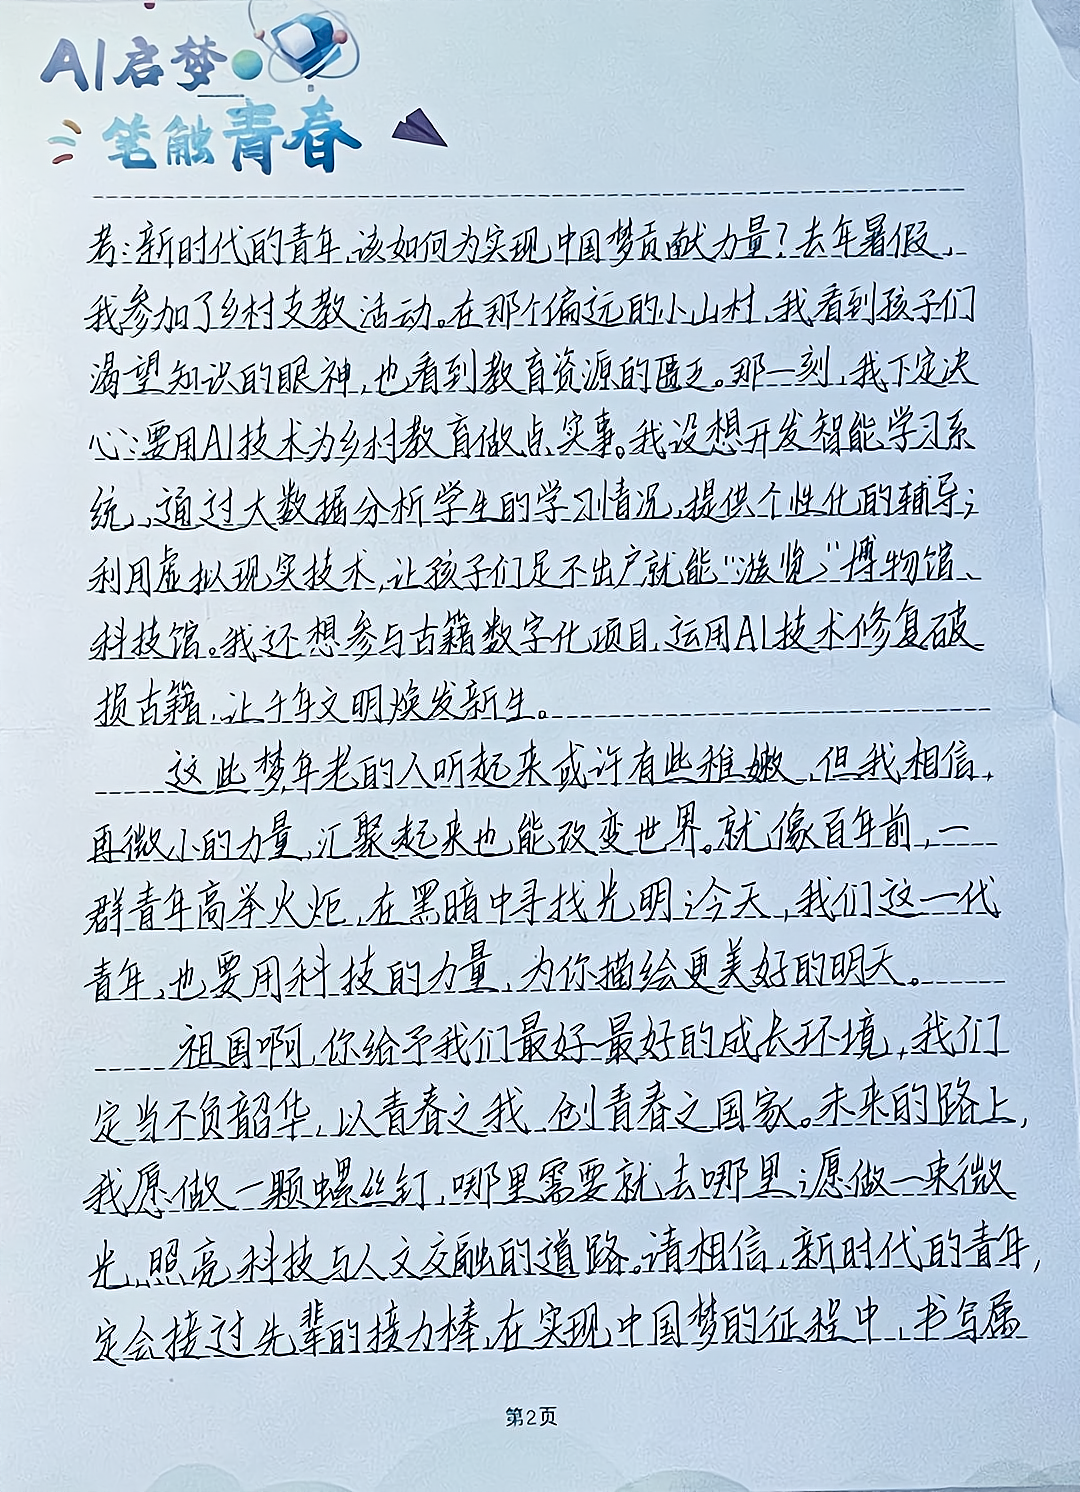 AI启梦
笔触青春
考：新时代的青年，该如何为实现中国梦贡献力量？去年暑假，
我参加了乡村支教活动。在那个偏远的小山村，我看到孩子们
渴望知识的眼神，也看到教育资源的匮乏。那一刻，我下定决
心：要用AI技术为乡村教育做点实事。我设想开发智能学习系
统，通过大数据分析学生的学习情况，提供个性化的辅导；
利用虚拟现实技术，让孩子们足不出户就能“游览”博物馆、
科技馆。我还想参与古籍数字化项目，运用AI技术修复破
损古籍，让千年文明焕发新生。
这些梦，年老的人听起来或许有些稚嫩，但我相信，
再微小的力量，汇聚起来也能改变世界。就像百年前，一
群青年高举火炬，在黑暗中寻找光明；今天，我们这一代
青年，也要用科技的力量，为你描绘更美好的明天。
祖国啊，你给予我们最好最好的成长环境，我们
定当不负韶华，以青春之我，创青春之国家。未来的路上，
我愿做一颗螺丝钉，哪里需要就去哪里；愿做一束微
光，照亮科技与人文交融的道路。请相信，新时代的青年，
定会接过先辈的接力棒，在实现中国梦的征程中，书写属
第2页